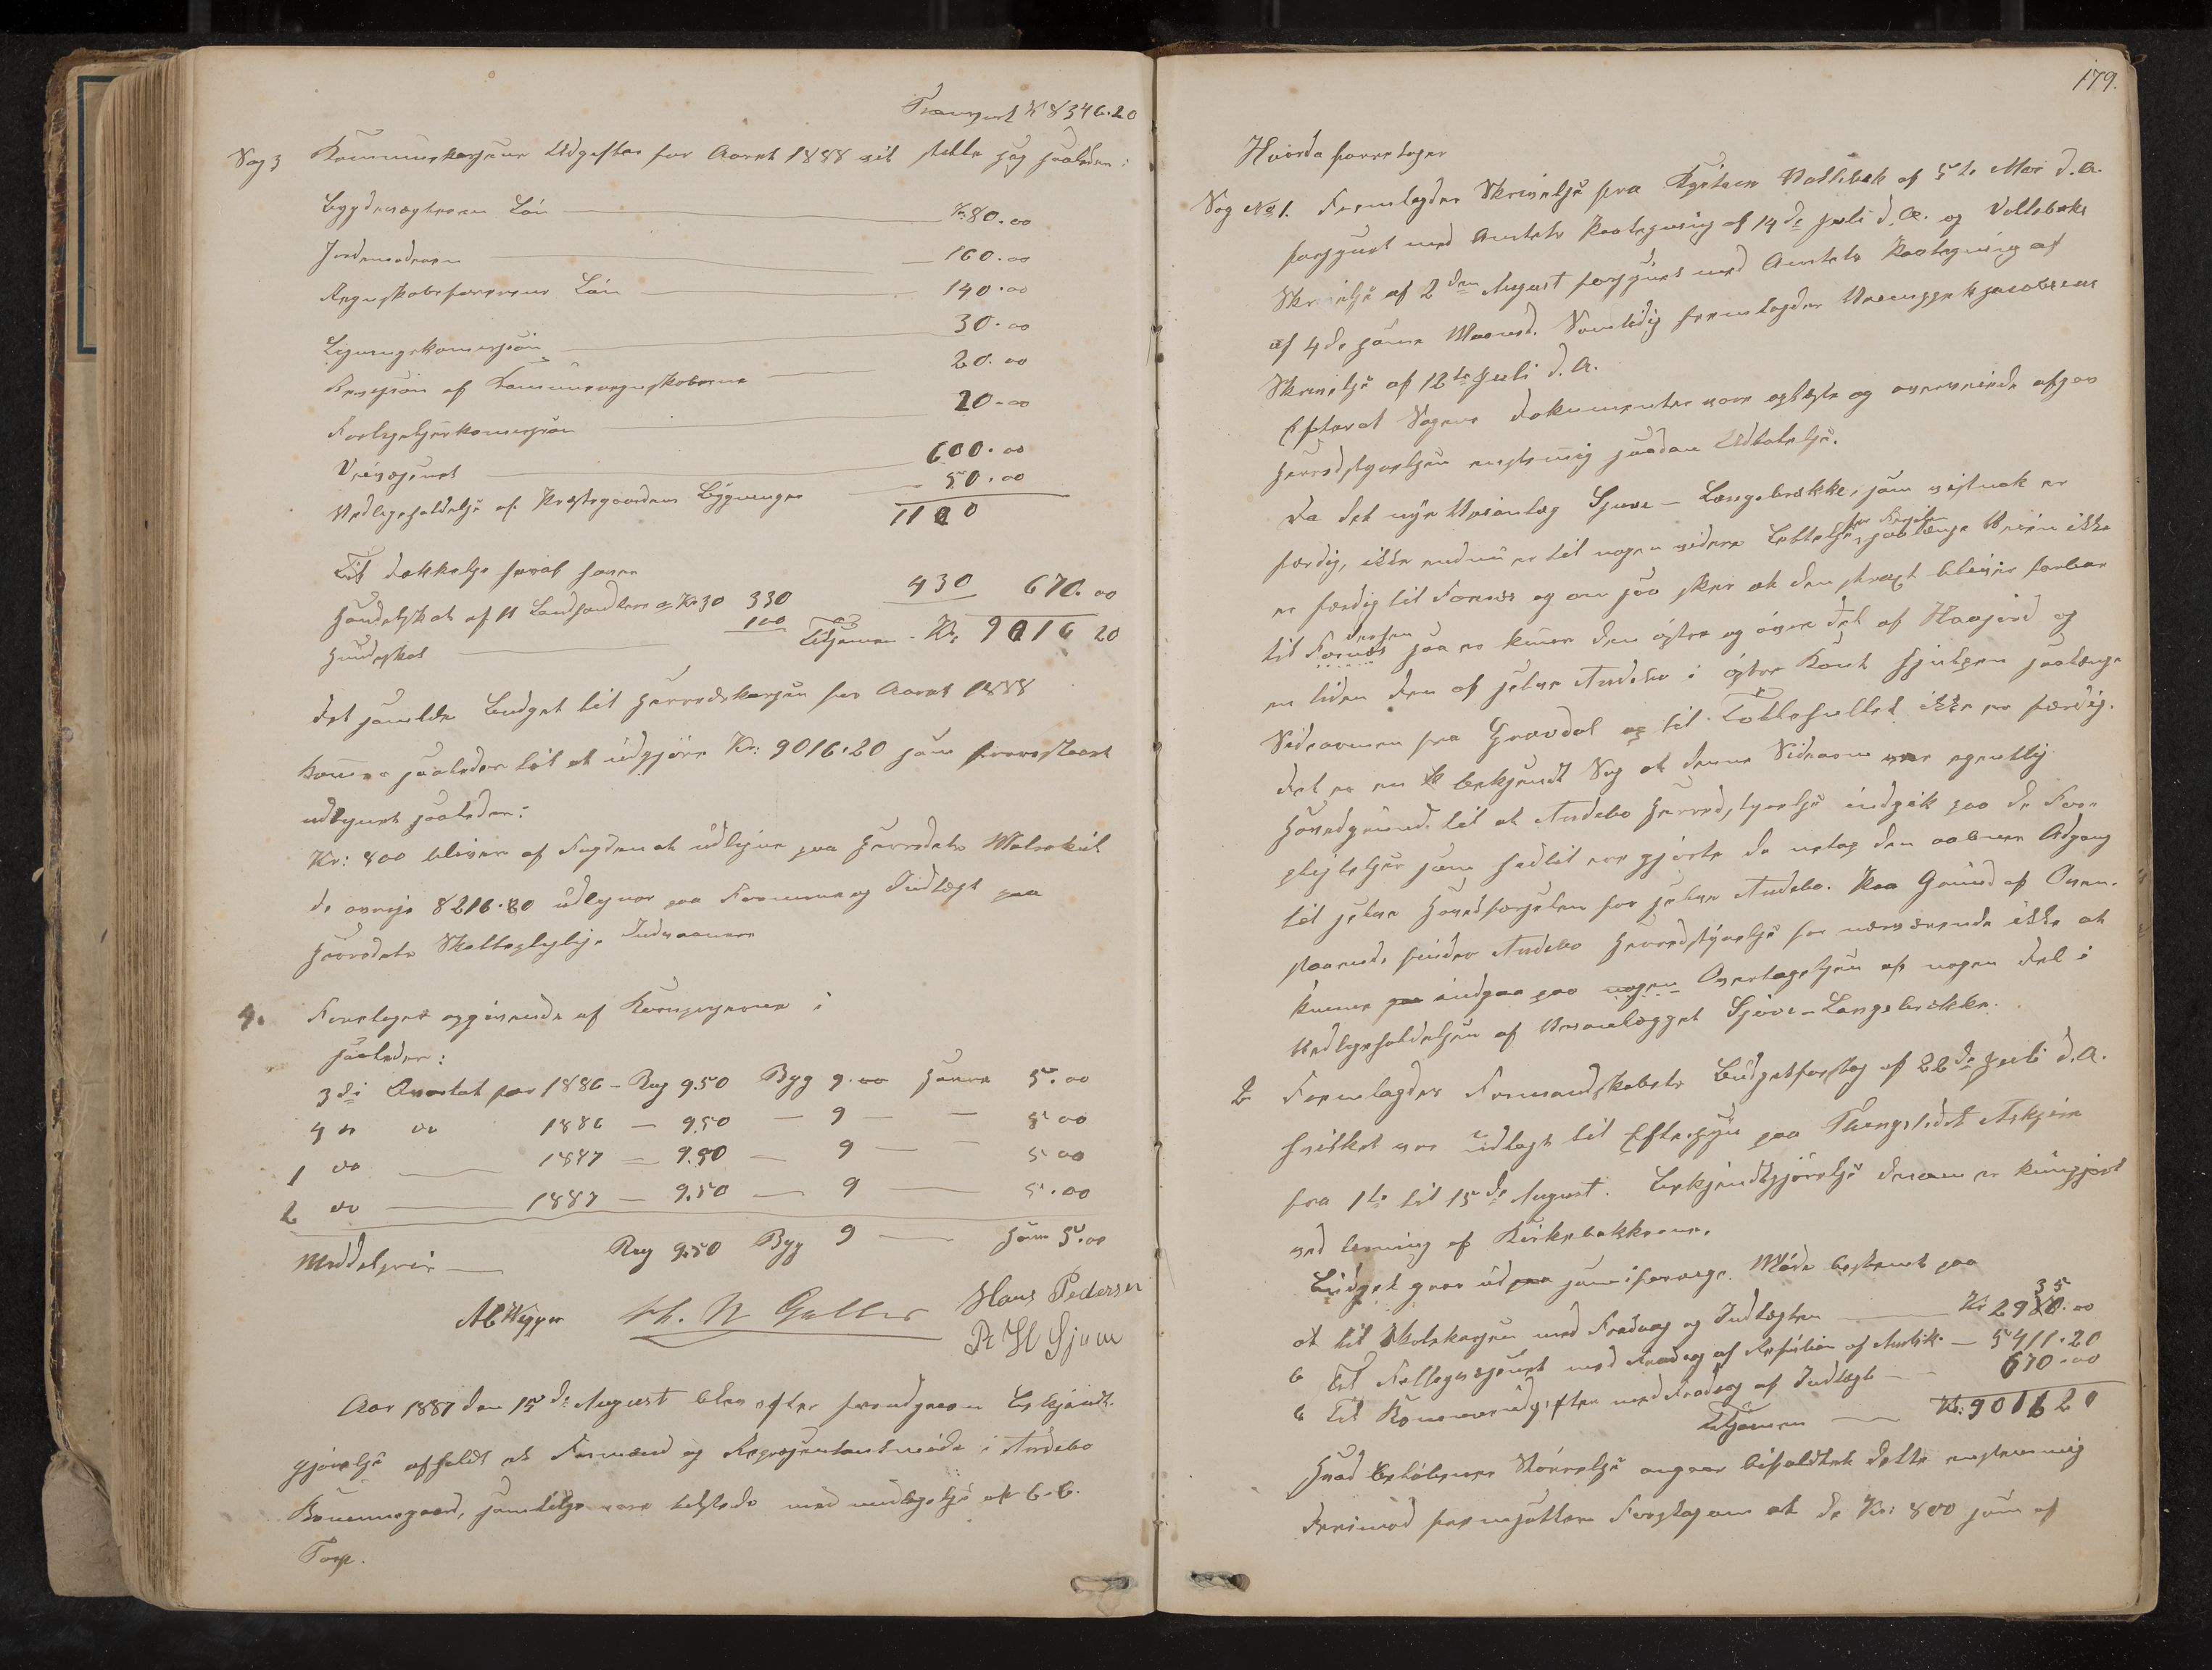 Transport Kr 8346.20
Sag 3 Kommunekassens Udgifter for Aaret 1888 vil stille sig saaledes:
Bygdevægterens Løn Kr. 80.00
Jordemoderen 160.00
Regnskabsførerens Løn 140.00
Ligningskomission 30.00
Revision af Kommuneregnskaberne 20.00
Forligelseskomission 20.00
Veivæsenet 600.00
Vedligeholdelse af Præstegaardens Bygninger 50.00
1100
Til Dækkelse heraf haves
Handelskat af 11 Landhandlere a Kr 30 330 430 670.00
Hundeskat 100 Tilsammen Kr: 9016 20
Det samlede Budget til Herredskassen for Aaret 1888
kommer saaledes til at udgjøre Kr: 9016.20 som foreslaaes
udlignet saaledes:
Kr: 800 bliver af Fogden at udligne paa Herredets Matrikul
de øvrige 8216.20 udlignes paa Formue og Indtægt paa
Herredets Skattepligtige Indvaanere
4. Foretoges opgivende af Kornpriserne i
saaledes:
3die Qvartal for 1886 - Rug 9.50 Byg 9.00 Havre 5.00
4 do 1886 - 9.50 - 9 - - 5 00
1 do - 1887 - 9.50 - 9 - - 5 00
2 do - 1887 - 9.50 - 9 - 5.00
Middelpris - Rug 9.50 Byg 9 - Havre 5.00
Hans Pedersen
Aar 1887 den 15de August blev efter foredgaaen Bekjendt-
gjørelse afholdt et Formænd og Repræsentantmøde i Andebo
Kommunegaard, samtlige vare tilstede med undtagelse af C. C.
Torp.
179.
Hvorda foretoges
Sag No 1. Fremlagdes Skrivelse fra Kaptein Vallebek af 5te Mai d.A.
forsynet med Amtets Paategning af 14de Juli d.A. og Vollebeks
Skrivelse af 2den August forsynet med Amtets Paategning af
af 4de samme Maaned. Samtidig fremlagdes Jacobsens
Skrivelse af 12te Juli d.A.
Efterat Sagens Dokumenter vare oplæste og overveiede afgav
Herredstyrelsen enstemmig saadan Udtalelse.
Da det nye Veianlæg Sjuve - Langebrække, som vistnok er
færdig, ikke endnu er til nogen videre Lettelse for Færselen saalænge Veien ikke
er færdig til Fornæs og om saa sker at den strax bliver farbar
til Fornæs saa er kunne den østre og øvre Del af Haasjord og
en liden Den af selve Andebo i østre Kant hjulpen saalænge
Sidearmen fra Gravdal og til ikke er færdig.
Det er en bekjendt Sag at denne Sidearm var egentlig
Hovedgrund til at Andebo Herredstyrelse indgik paa de For-
pligtelser som hidtil ere gjorte da netop den aabner Adgang
til selve Hovedfærselen for selve Andebo. Paa Grund af Oven-
staaende finder Andebo Herredstyrelse for nærværende ikke at
kunne indgaa paa nogen Overtagelsen af nogen Del i
Vedligeholdelsen af Veianlægget Sjuve - Langebrække.
2 Fremlagdes Formandskabets Budgetforslag af 22de Juli d.A.
hvilket var udlagt til Eftersyn paa Thingstedet Askjem
fra 1te til 15de August. Bekjendtgjørelse derom er kungjort
ved læsning af Kirkebakkerne.
Budget gaar ud paa som iforveie Møde bestemt paa
at til Skolekassen med Fradrag og Indtægten - Kr 2935.00
b Til Fattigvæsenet med Fradrag af Refusion af Amtsk. - 5411.20
c Til Kommuneudgifter med Fradrag af Indtægt - 670.00
Tilsammen - Kr: 9016 20
Hvad Beløbenes Størrelse angaar bifaldtes dette enstemmig
derimod fremsattes Forslag om at de Kr: 800 som af